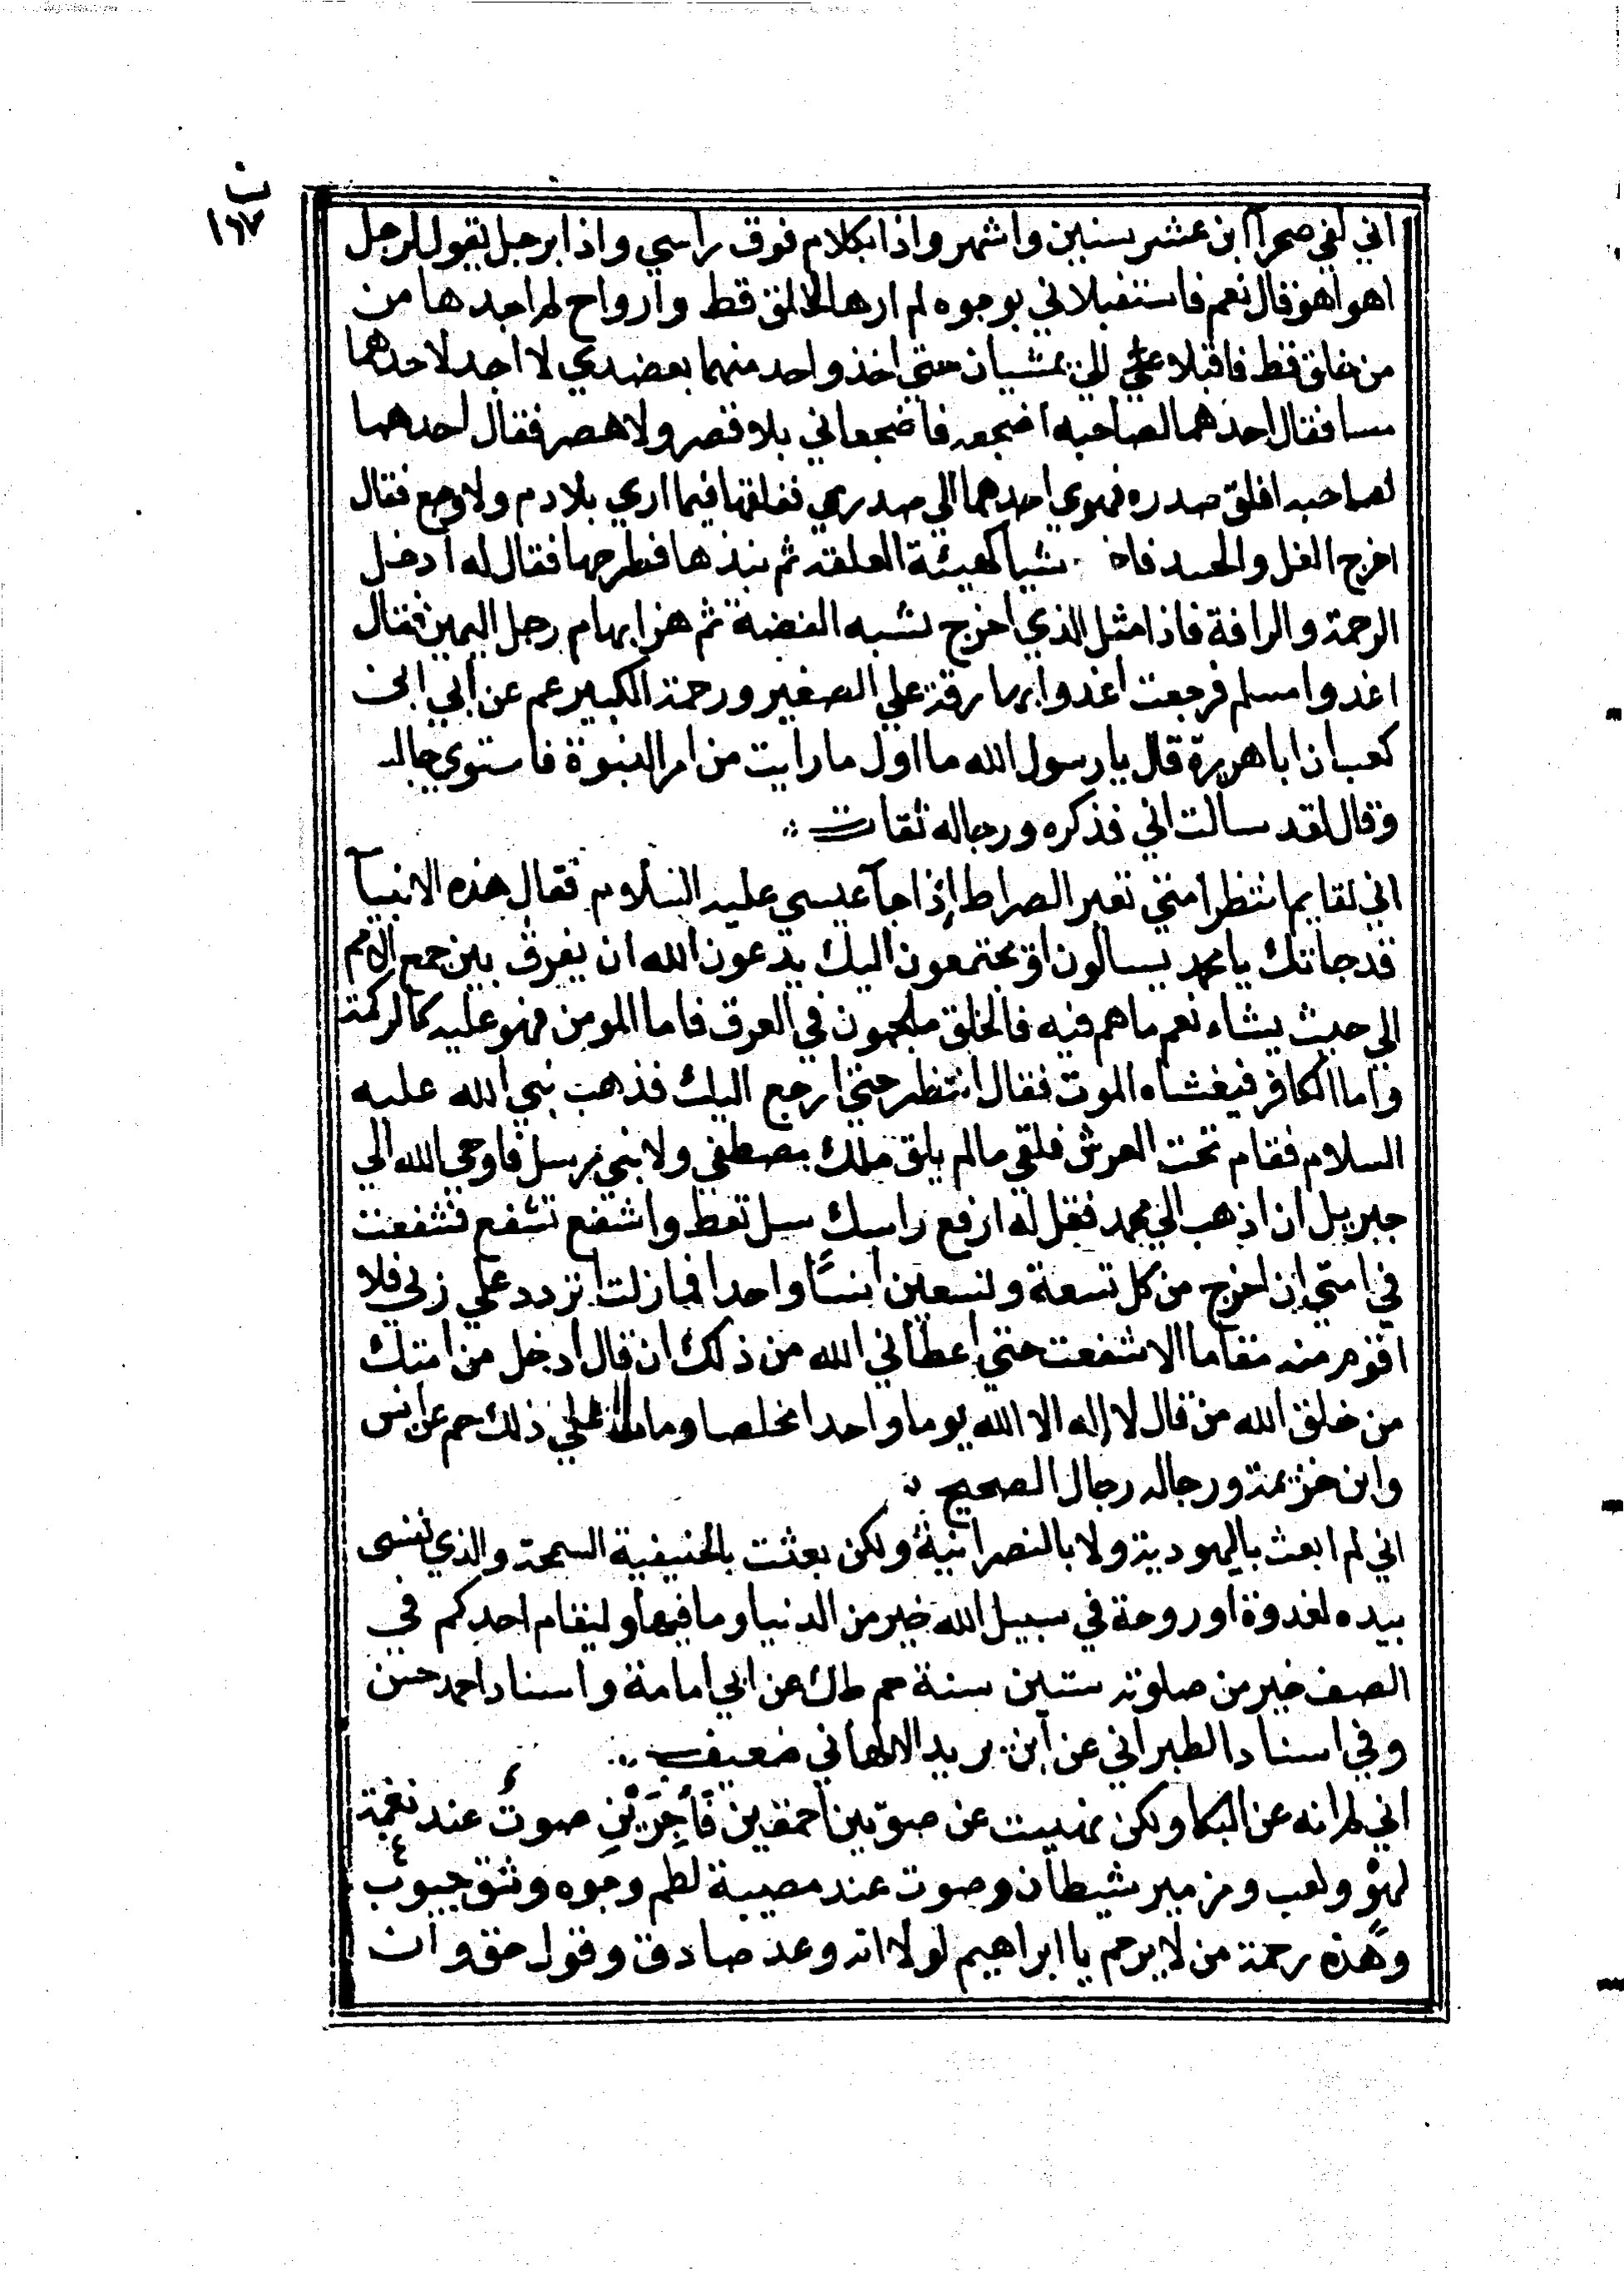 ن
١٦٧
اني لفي صحرآ ابن عشر سنين واشهر واذا بكلام فوق راسي واذا برجل يقول لرجل
اهو اهو قال نعم فاستقبلاني بوجوه لم ارها لخلق قط وارواح لم اجدها من
من خلق قط فاقبلا الي يمشيان حتي اخذ واحد منهما بعضدي لا اجد لاحدهما
مسا فقال احدهما لصاحبه اضجعه فاضجعاني بلا قصر ولا هصر فقال احدهما
لصاحبه افلق صدره فهوي احدهما الي صدري ففلقها فيما اري بلا دم ولا وجع فقال
اخرج الغل والحسد شيا كهيئة العلقه ثم نبذها فطرحها فقال له ادخل
الرحمة والرافة فاذا مثل الذي اخرج شبه الفضة ثم هز ابهام رجل اليمين فقال
اغد واسلم فرجعت اغدوا بها رقة علي الصغير ورحمة الكبير عم عن ابي ابن
كعب ان ابا هريرة قال يا رسول الله ما اول ما رايت من امر النبوة فاستوي جالسا
وقال لقد سالت اني فذكره ورجاله ثقات
اني لقايم انتظر امتي تعبر الصراط إذا جآ عيسي عليه السلام فقال هذه الانبيآ
قد جاتك يا محمد يسالون او يجتمعون اليك يدعون الله ان يفرق بين جمع الامم
الي حيث يشاء نعم ما هم فيه فالخلق ملجمون في العرق فاما المومن فهو عليه كالزكمة
واما الكافر فيغشاه الموت فقال انتظر حتي ارجع اليك فذهب نبي الله عليه
السلام فقام تحت العرش فلقي ما لم يلق ملك مصطفي ولا نبي مرسل فاوحي الله الي
جبريل ان اذهب الي محمد فقل له ارفع راسك سل تعط واشفع تشفع فشفعت
في امتي ان اخرج من كل تسعة وتسعين انسًا واحدا فما زلت اتردد علي ربي فلا
اقوم منه مقاما الا شفعت حتي اعطاني الله من ذلك ان قال ادخل من امتك
من خلق الله من قال لا إله الا الله يوما واحدا مخلصا ومات علي ذلك حم عن انس
وابن خزيمة ورجاله رجال الصحيح
اني لم ابعث باليهودية ولا بالنصرانية ولكن بعثت بالحنيفية السمحة والذي نفسى
بيده لغدوة او روحة في سبيل الله خير من الدنيا وما فيها ولمقام احدكم في
الصف خير من صلوته ستين سنة حم طك عن ابي امامة واسناد احمد حسن
وفي اسناد الطبراني عن ابن يريد الالهاني ضعيف
اني لم انه عن البكا ولكن نهيت عن صوتين احمقين فَأجِرَيْنِ صوتٌ عند نغمة
لهوٍ ولعب ومزمير شيطان وصوت عند مصيبة لطم وجوه وشق جيوب
وهذه رحمة من لا يرحم يا ابراهيم لولا انه وعد صادق وقول حق وان